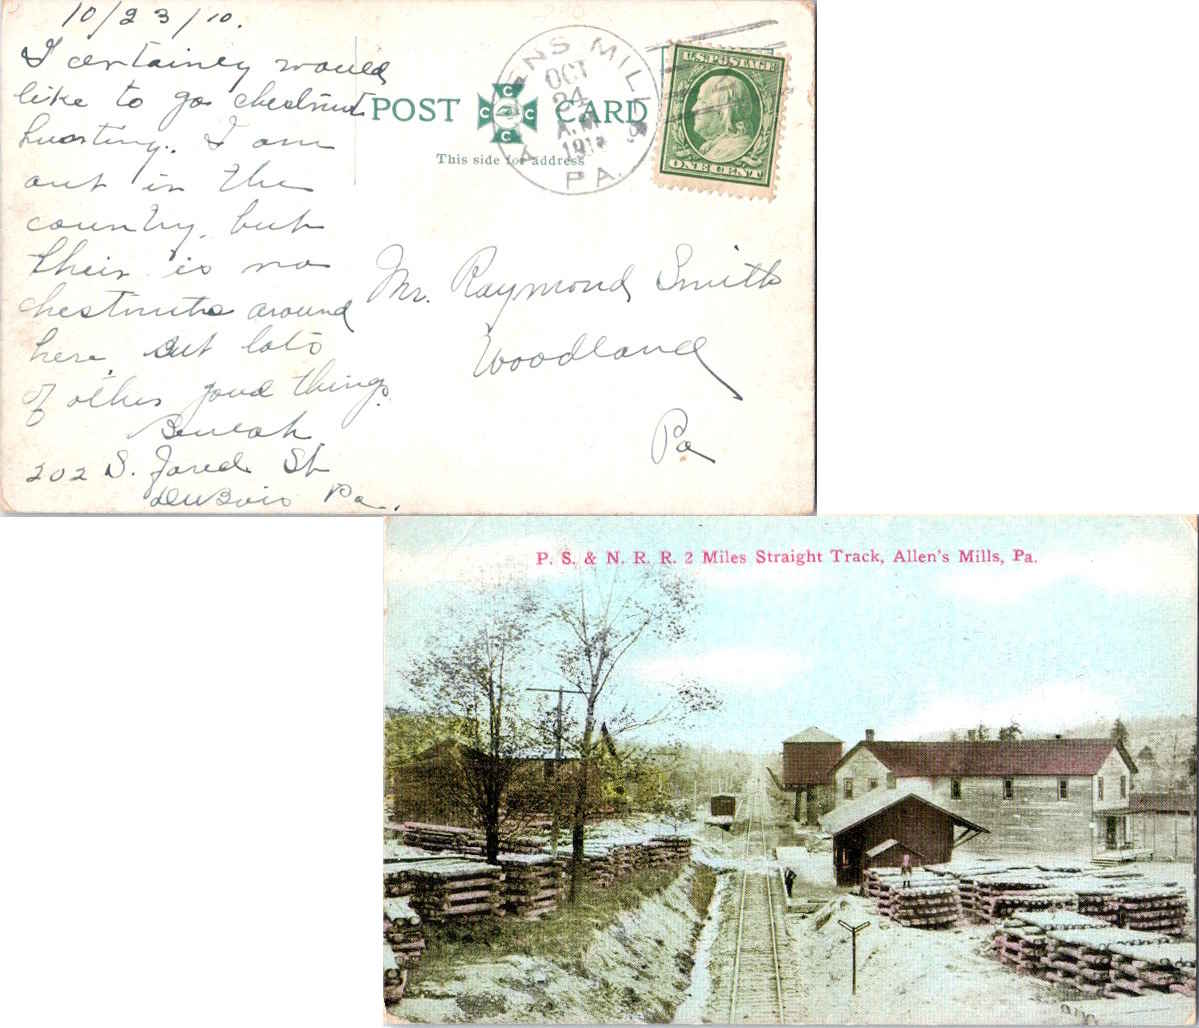 10/23/10.
I certainey would
like to go chestnut
hunting. I am
out in the
country, but
their is no
chestnuts around
here, But lots
of other good things.
Beulah
202 S. Jared St
DuBois Pa.
POST CARD
C C C C
This side for address
ALLENS MILLS
OCT
24
A.M
191
PA.
U.S. POSTAGE
ONE CENT
Mr. Raymond Smith
Woodland
Pa
P. S. & N. R. R. 2 Miles Straight Track, Allen's Mills, Pa.